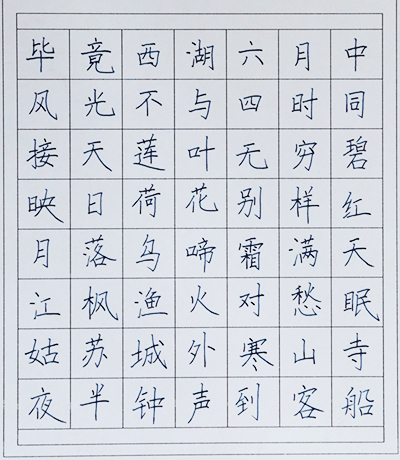 毕竟西湖六月中
风光不与四时同
接天莲叶无穷碧
映日荷花别样红
月落乌啼霜满天
江枫渔火对愁眠
姑苏城外寒山寺
夜半钟声到客船